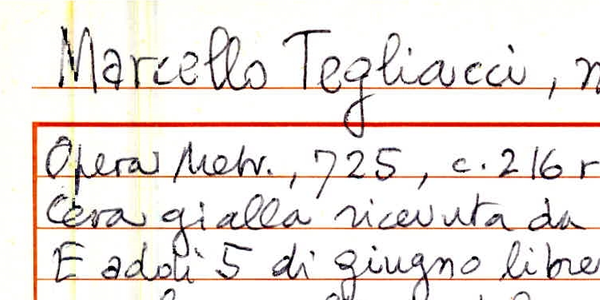 Marcello Tegliacci,
Opera Metr., 725, c. 216 r
Cera gialla ricevuta da
E adoi 5 di giugno libre